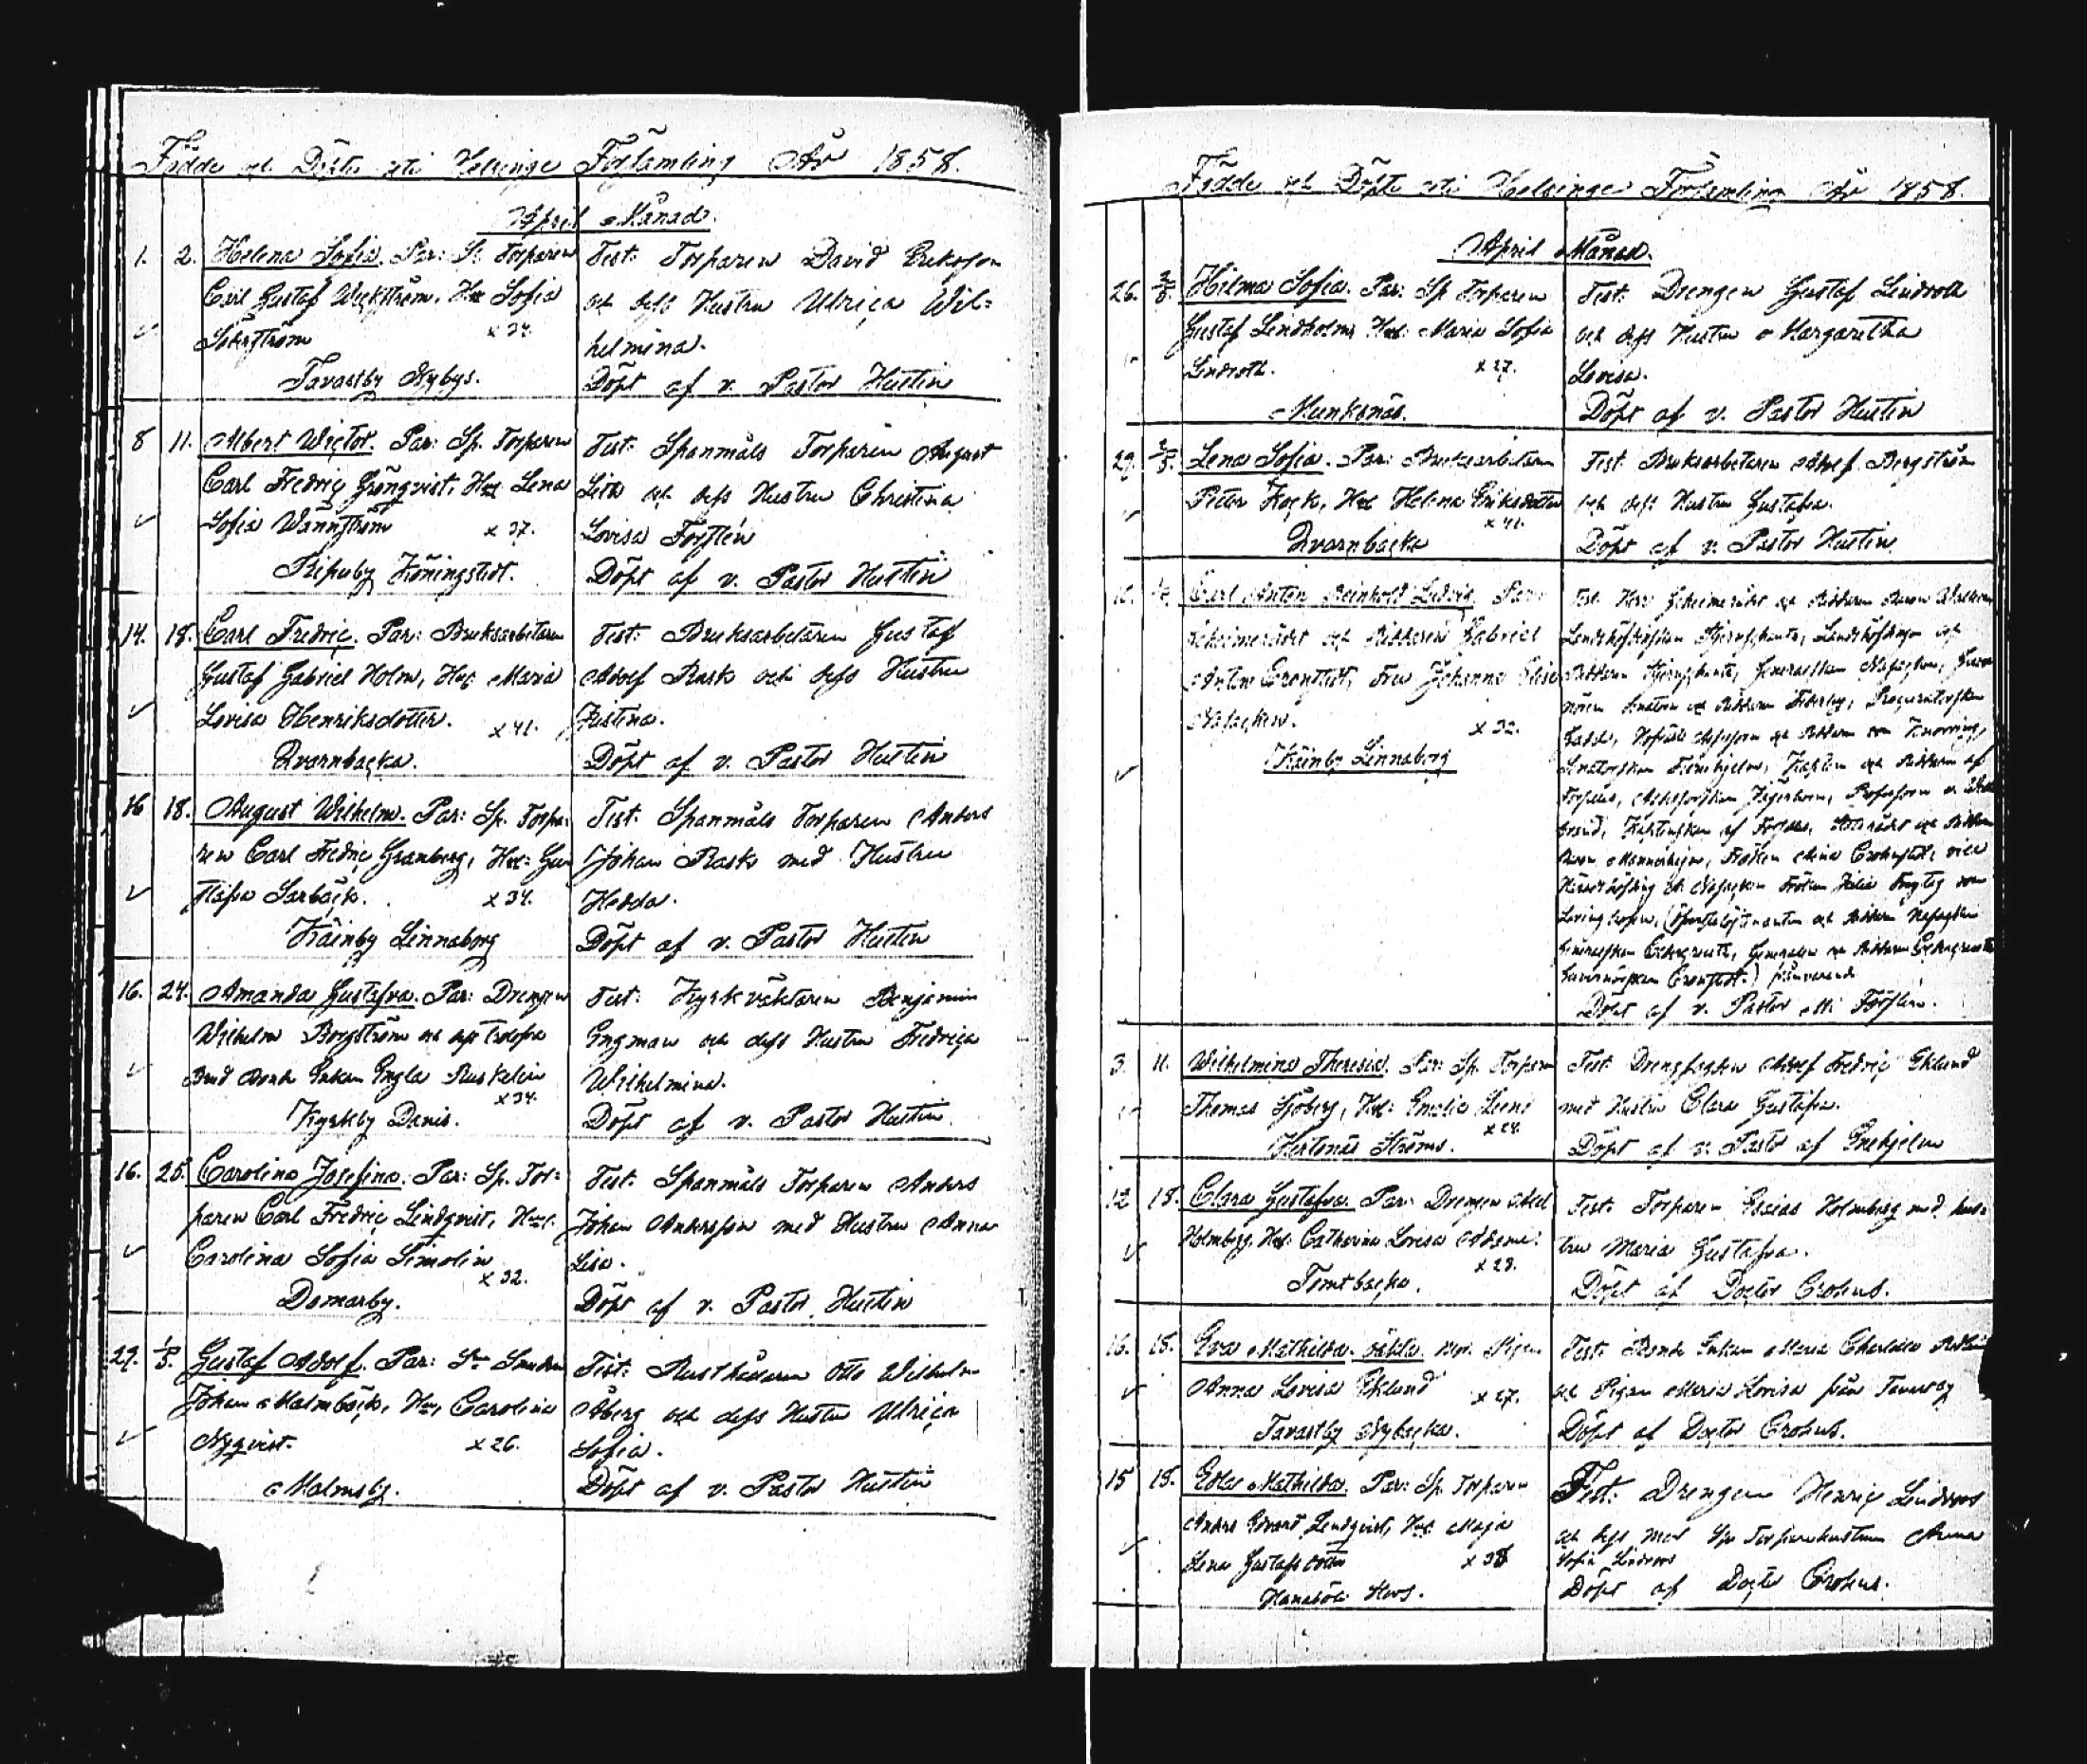 Födde och Döpte uti Helsinge Församling År 1858.
April Månad.
1. 2. Helena Sofia. Par: Sp. Torparen
Carl Gustaf Weckström, Hu Sofia
Söderström x 34.
Tavastby Nybys.
Test: Torparen David Eriksson
och dess Hustru Ulrica Wil-
helmina.
Döpt af v. Pastor Hustin
8 11. Albert Wictor. Par: Sp. Torparen
Carl Fredric Grönqvist, Hu Lena
Sofia Wännström x 37.
Ripuby Köningstedt.
Test: Spanmåls Torparen August
och dess Hustru Christina
Lovisa Forstén
Döpt af v. Pastor Hustin
14. 18. Carl Fredric. Par: Bruksarbetaren
Gustaf Gabriel Holm, Hu Maria
Lovisa Henriksdotter. x 41.
Qvarnbacka.
Test: Bruksarbetaren Gustaf
Adolf Rask och dess Hustru
Justina.
Döpt af v. Pastor Hustin
16 18. August Wilhelm. Par: Sp. Torpa-
ren Carl Fredric Granberg, Hu: Gu-
stafva Sarbäck. x 34.
Kåinby Linnaborg
Test: Spanmåls Torparen Anders
Johan Rask med Hustru
Hedda.
Döpt af v. Pastor Hustin
16. 24. Amanda Gustafva. Par: Drengen
Wilhelm Borgström och dess trolofva
Brud Bonde Enkan Engla x 34.
Kyrkby Danis.
Test: Kyrkväktaren Benjamin
Engman och dess Hustru Fredrica
Wilhelmina.
Döpt af v. Pastor Hustin
16. 25. Carolina Josefina. Par: Sp. Tor-
paren Carl Fredric Lindqvist, Hu:
Carolina Sofia Simolin x 32.
Domarby.
Test: Spanmåls Torparen Anders
Johan Andersson med Hustru Anna
Lisa.
Döpt af v. Pastor Hustin
29. 1/5. Gustaf Adolf. Par:
Johan Malmbäck, Hu, Carolina
Nyqvist. x 26.
Malmsby.
Test: Rusthållaren Otto Wilhelm
Åberg och dess Hustru Ulrica
Sofia.
Döpt af v. Pastor Hustin
Födde och Döpte uti Helsinge Församling År 1858.
April Månad.
26. 2/5. Hilma Sofia. Par: Sp Torparen
Gustaf Lindholm, Hu: Maria Sofia
Lindroth. x 27.
Munksnäs.
Test: Drengen Gustaf Lindroth
och dess Hustru Margaretha
Lovisa.
Döpt af v. Pastor Hustin
29. 2/5. Lena Sofia. Par: Bruksarbetaren
Petter Kock, Hu Helena Eriksdotter
x 41.
Qvarnbacka
Test: Bruksarbetaren Adolf Bergström
och dess Hustru Gustafva.
Döpt af v. Pastor Hustin
Carl Anton Reinhold Ludvig. Par:
Geheimerådet och Riddaren Gabriel
Anton Cronstedt, Fru Johanna Elise
Nasacken. x 32.
Kåinby Linnaborg
Test: Herr Geheimerådet och Riddaren Baron Walleen
Landshöfdingskan Stjernschantz, Landshöfdingen och
Riddaren Stjernschantz, Generalskan Nasacken,
Senatorn och Riddaren Federley, Procuratorskan
och Riddaren von Knorring,
Senatorskan Furuhjelm, och Riddaren af
Forselles, Professorn
af Forselles, och Riddaren
Baron Mannerheim, Fröken Mina Cronstedt, vice
Häradshöfding Nasacken Fröken Julia Freytag von
Loringhofen, (Öfverstelöjtnanten och Riddaren Nasacken
Generalskan Cedercreutz, Generalen och Riddaren Cedercreutz
Guvernörskan Cronstedt.) frånvarande
Döpt af v. Pastor Forstén.
3. 11. Wilhelmina Theresia. Par: Sp. Torparen
Thomas Sjöberg, Hu: Emelie
x 24.
Hertonäs Ströms.
Test: Drengfogden Adolf Fredric Eklund
med Hustru Clara Gustafva.
Döpt af v. Pastor af Enehjelm
12 18. Clara Gustafva. Par: Drengen Abel
Holmberg, Hu: Catharina Lovisa
x 23.
Tomtbacka.
Test: Torparen Esaias Holmberg med hus-
tru Maria Gustafva.
Döpt af Doctor Crohns.
16. 18. Eva Mathilda. oäkta. Mod. Pigan
Anna Lovisa Eklund x 27.
Tavastby Nybacka.
Test: Bonde Enkan Maria Charlotta
och Pigan Maria Lovisa från
Döpt af Doctor Crohns.
15 18. Edla Mathilda. Par: Sp. Torparen
Anders Edvard Lindqvist, Hu Maja
Lena Gustafsdotter x 38
Hanaböle
Test: Drengen Henric Lindroos
och dess Mod Sp Torparehustrun Anna
Sofia Lindroos
Döpt af Doctor Crohns.